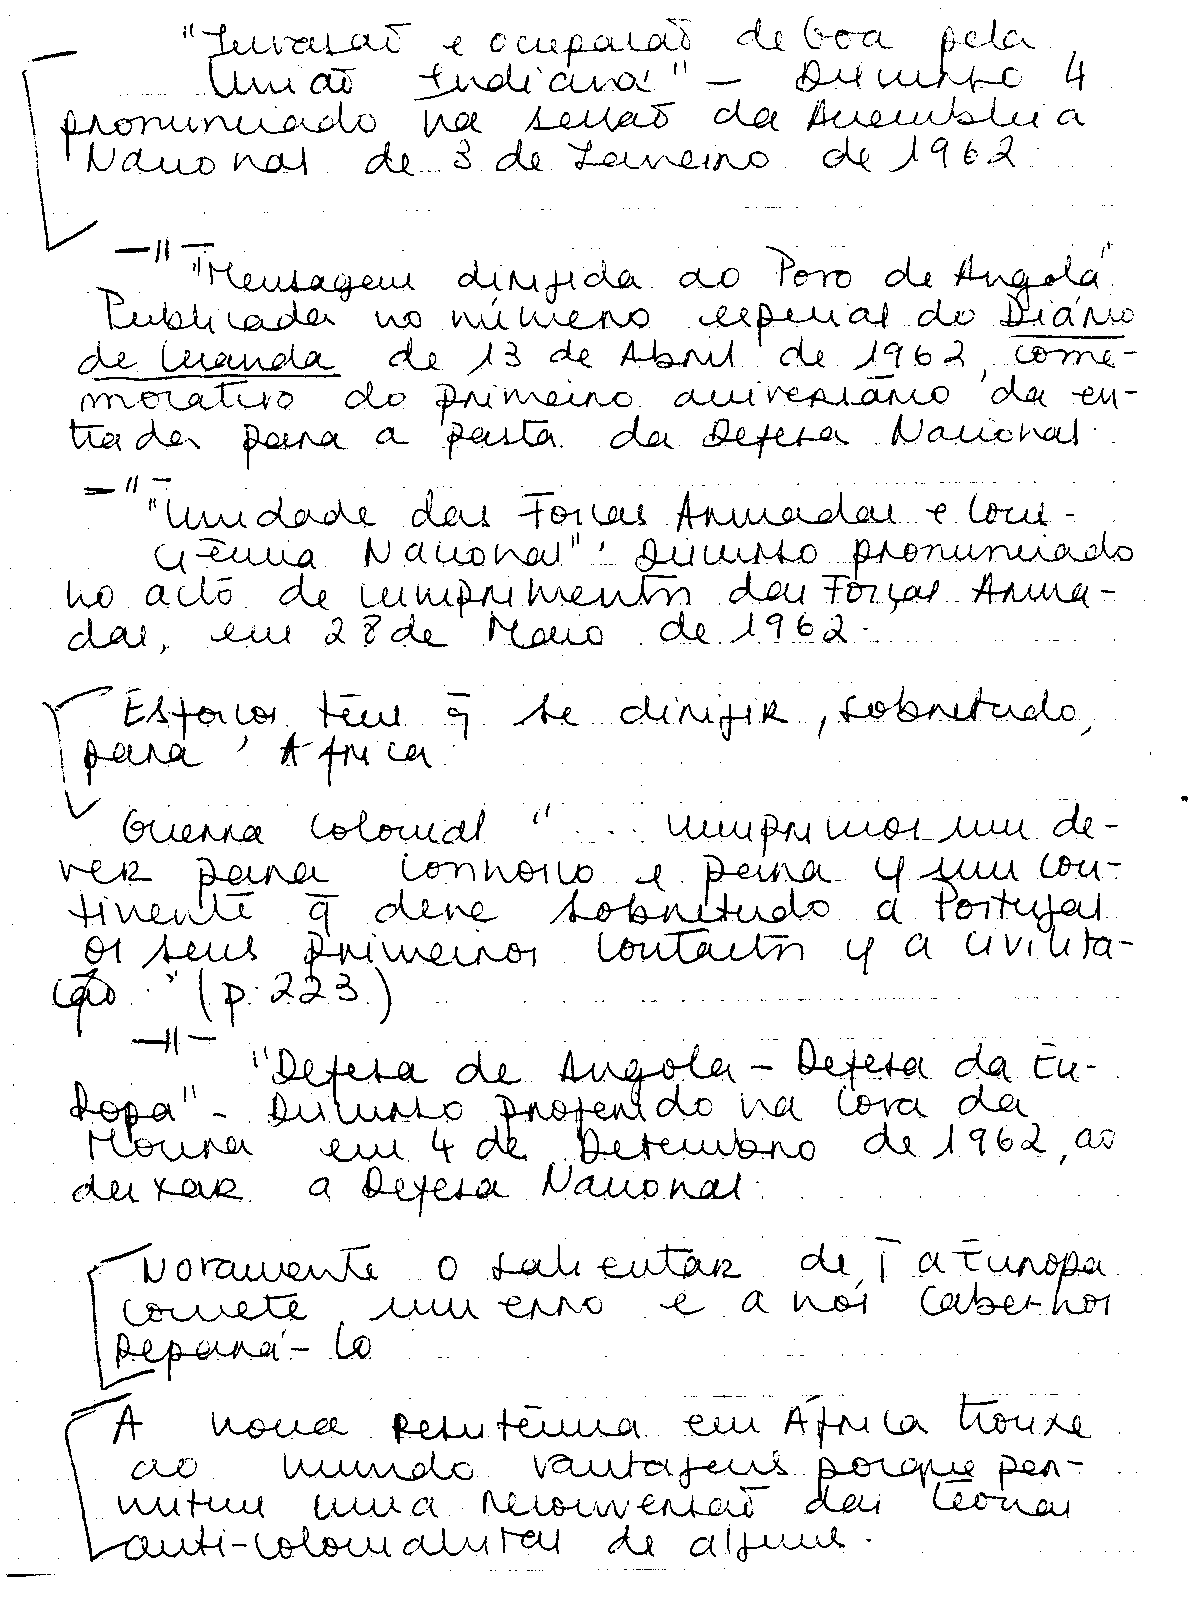 "Invasaõ e ocupaçaõ de Goa pela
Uniaõ Indiana" – Discurso
pronunciado na sessaõ da Assembleia
Nacional de 3 de Janeiro de 1962
–"–
"Mensagem dirigida ao Povo de Angola"
Publicada no número especial do Diário
de Luanda de 13 de Abril de 1962, come-
morativo do primeiro aniversário da en-
trada para a pasta da Defesa Nacional.
–"–
"Unidade das Forças Armadas e Cons-
ciência Nacional". Discurso pronunciado
no acto de cumprimentos das Forças Arma-
das, em 28 de Maio de 1962.
Esforços têm q̄ se dirigir, sobretudo,
para África.
Guerra Colonial "... cumprimos um de-
ver para connosco e para c/ um con-
tinente q̄ deve sobretudo a Portugal
os seus primeiros contactos c/ a civiliza-
ção." (p. 223.)
–"–
"Defesa de Angola – Defesa da Eu-
ropa" – Discurso proferido na Cova da
Moura em 4 de Dezembro de 1962, ao
deixar a Defesa Nacional.
Novamente o salientar de q̄ a Europa
comete um erro e a nós cabe-nos
repará-lo
A nossa resistência em África trouxe
ao mundo vantagens porque per-
mitiu uma reconversaõ das teorias
anti-colonialistas de alguns.